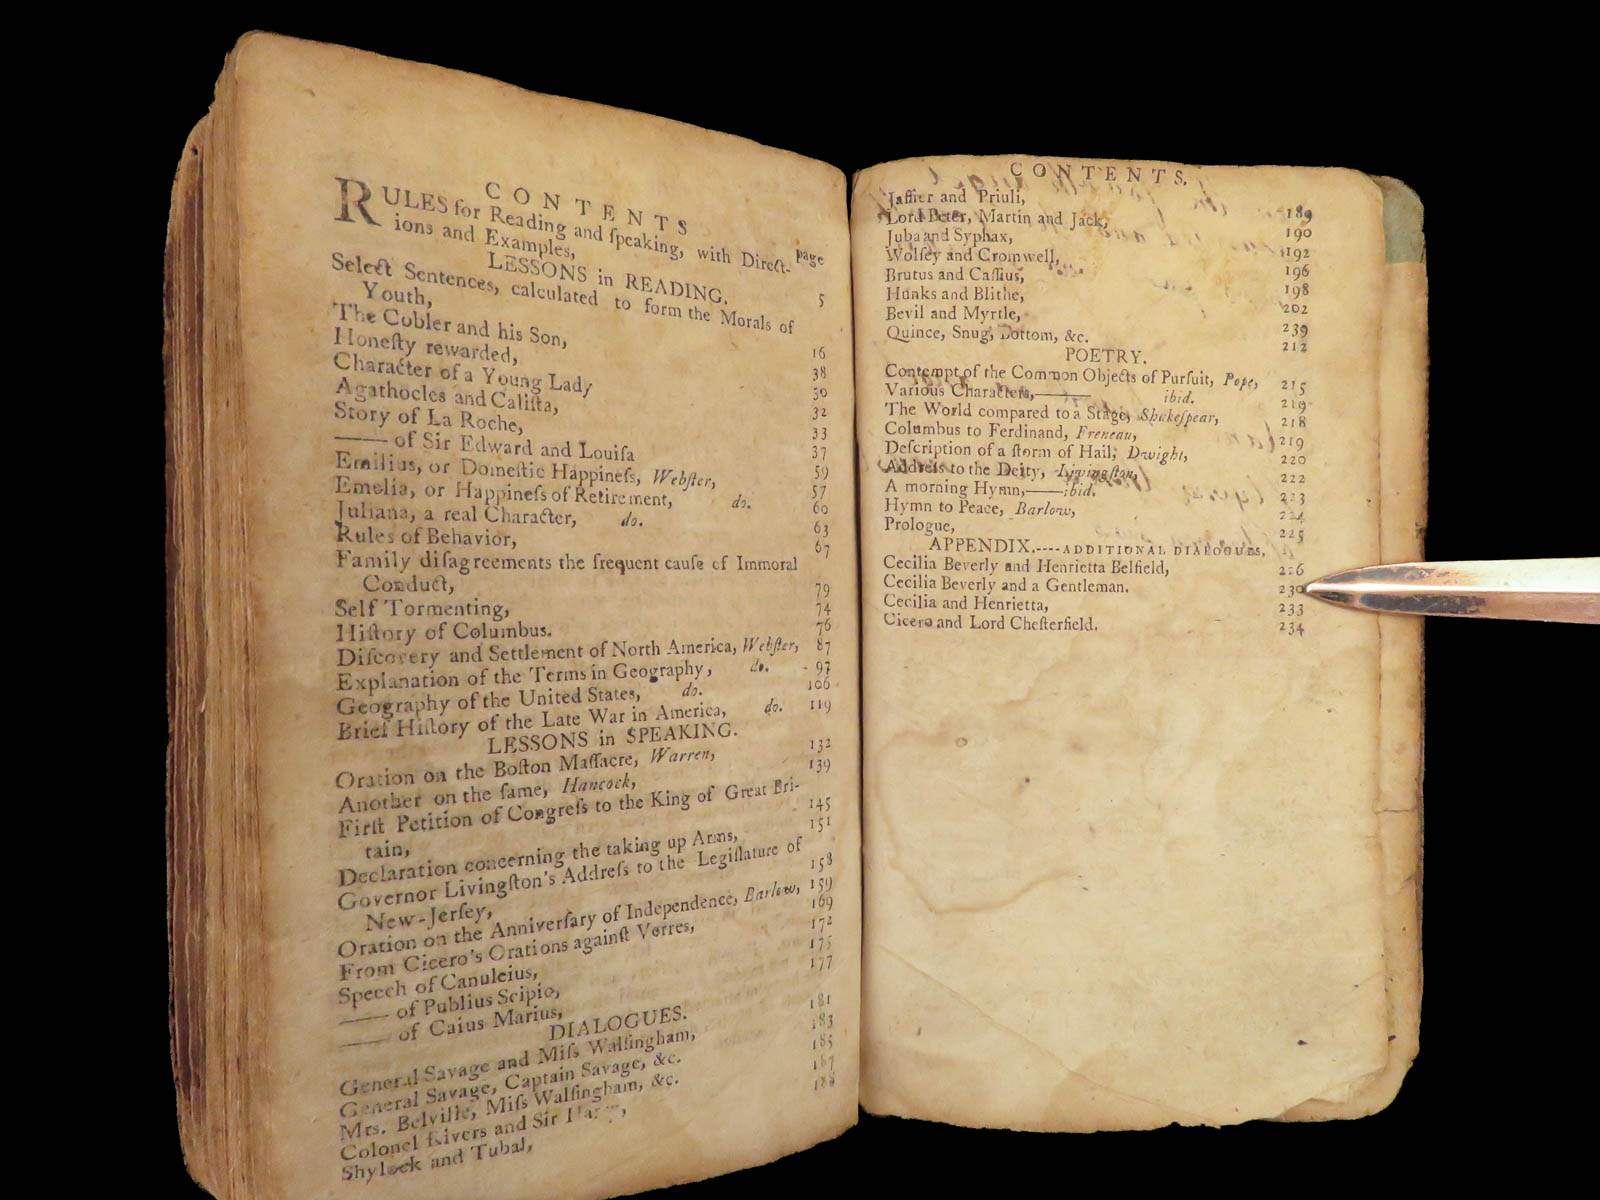 CONTENTS
page
RULES for Reading and ſpeaking, with Direct-
ions and Examples, 5
LESSONS in READING.
Select Sentences, calculated to form the Morals of
Youth, 16
The Cobler and his Son, 38
Honeſty rewarded, 30
Character of a Young Lady 32
Agathocles and Caliſta, 33
Story of La Roche, 37
—— of Sir Edward and Louiſa 59
Emilius, or Domeſtic Happineſs, Webſter, 57
Emelia, or Happineſs of Retirement, do. 60
Juliana, a real Character, do. 63
Rules of Behavior, 67
Family diſagreements the frequent cauſe of Immoral
Conduct, 79
Self Tormenting, 74
Hiſtory of Columbus. 76
Diſcovery and Settlement of North America, Webſter, 87
Explanation of the Terms in Geography, do. 97
Geography of the United States, do. 106
Brief Hiſtory of the Late War in America, do. 119
LESSONS in SPEAKING.
Oration on the Boſton Maſſacre, Warren, 132
Another on the ſame, Hancock, 139
Firſt Petition of Congreſs to the King of Great Bri-
tain, 145
Declaration concerning the taking up Arms, 151
Governor Livingſton's Addreſs to the Legiſlature of
New-Jerſey, 158
Oration on the Anniverſary of Independence, Barlow, 159
From Cicero's Orations againſt Verres, 169
Speech of Canuleius, 172
—— of Publius Scipio, 175
—— of Caius Marius, 177
DIALOGUES.
General Savage and Miſs Walſingham, 181
General Savage, Captain Savage, &c. 183
Mrs. Belville, Miſs Walſingham, &c. 185
Colonel Rivers and Sir 187
Shylock and Tubal, 188
CONTENTS.
Jaffier and Priuli, 189
Lord Peter, Martin and Jack, 190
Juba and Syphax, 192
Wolſey and Cromwell, 196
Brutus and Caſſius, 198
Hunks and Blithe, 202
Bevil and Myrtle, 239
Quince, Snug, Bottom, &c. 212
POETRY.
Contempt of the Common Objects of Purſuit, Pope, 215
Various Characters,—— ibid. 219
The World compared to a Stage, Shakeſpear, 218
Columbus to Ferdinand, Freneau, 219
Deſcription of a ſtorm of Hail, Dwight, 220
Addreſs to the Deity, Livingſton, 222
A morning Hymn,——ibid. 223
Hymn to Peace, Barlow, 224
Prologue, 225
APPENDIX.----ADDITIONAL DIALOGUES.
Cecilia Beverly and Henrietta Belfield, 226
Cecilia Beverly and a Gentleman. 230
Cecilia and Henrietta, 233
Cicero and Lord Cheſterfield. 234